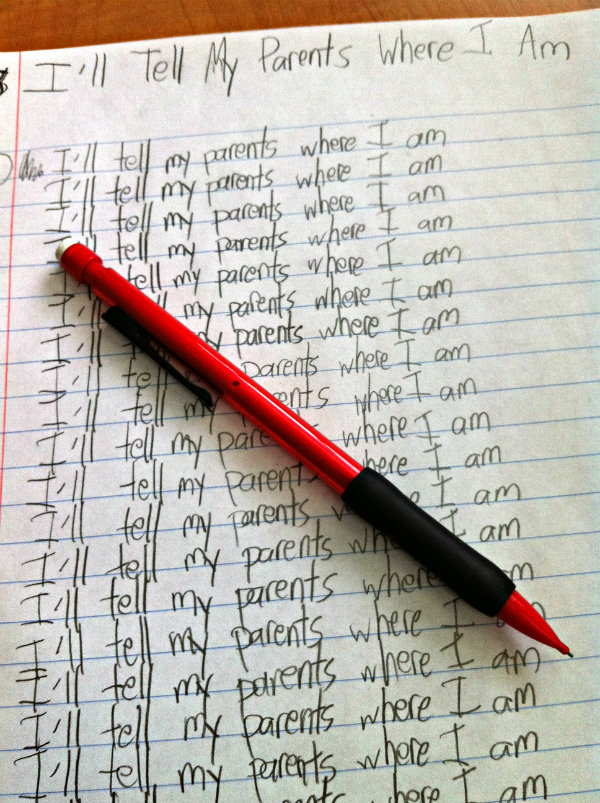 I'll Tell My Parents Where I Am
I'll tell my parents where I am
I'll tell my parents where I am
I'll tell my parents where I am
tell my parents where I am
tell my parents where I am
my parents where I am
I'll parents where I am
I'll parents where I am
I'll tell my parents where I am
I'll tell my where I am
I'll tell my parents where I am
I'll tell my parents I am
I'll tell my parents I am
I'll tell my parents where
I'll tell my parents where I
I'll tell my parents where I am
I'll tell my parents where I am
I'll tell my parents where I am
parents where I am